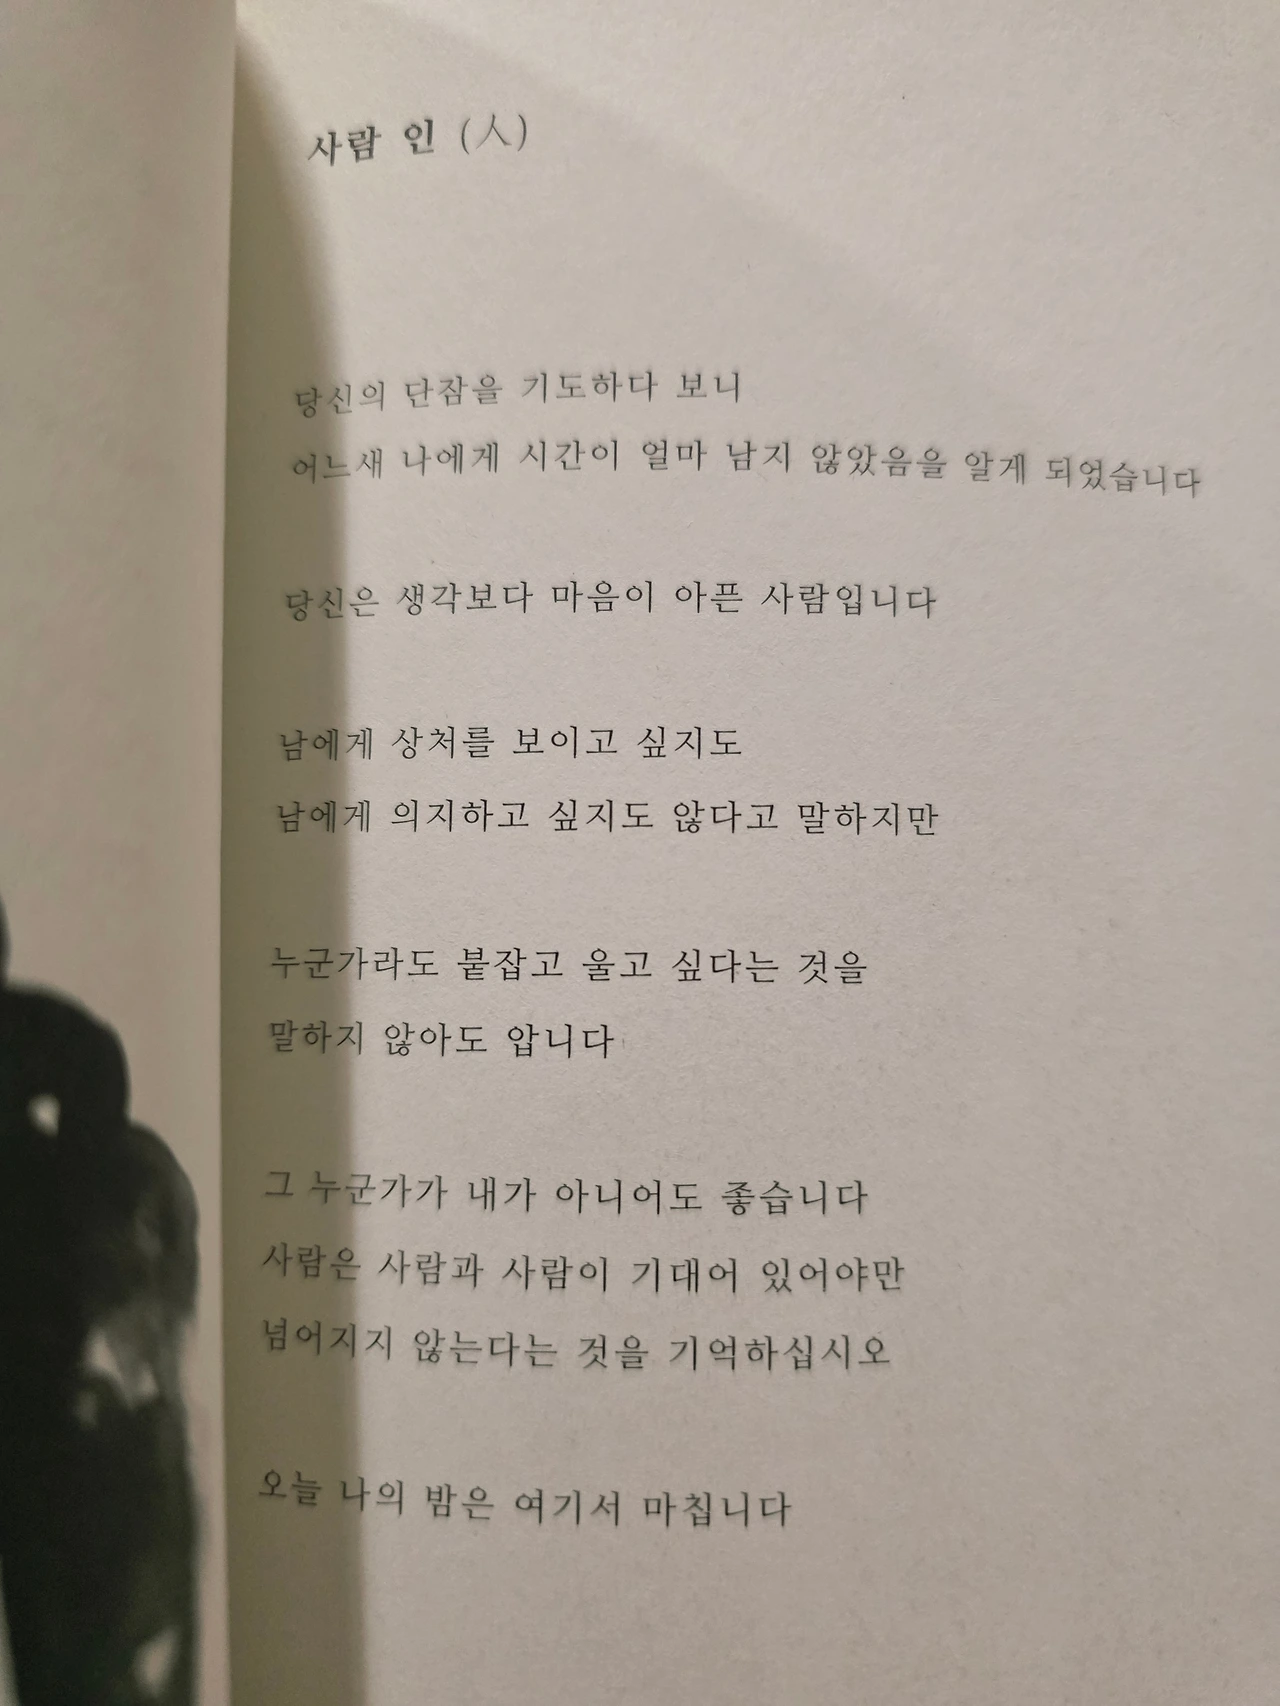 사람 인 (人)
당신의 단잠을 기도하다 보니
어느새 나에게 시간이 얼마 남지 않았음을 알게 되었습니다
당신은 생각보다 마음이 아픈 사람입니다
남에게 상처를 보이고 싶지도
남에게 의지하고 싶지도 않다고 말하지만
누군가라도 붙잡고 울고 싶다는 것을
말하지 않아도 압니다
그 누군가가 내가 아니어도 좋습니다
사람은 사람과 사람이 기대어 있어야만
넘어지지 않는다는 것을 기억하십시오
오늘 나의 밤은 여기서 마칩니다